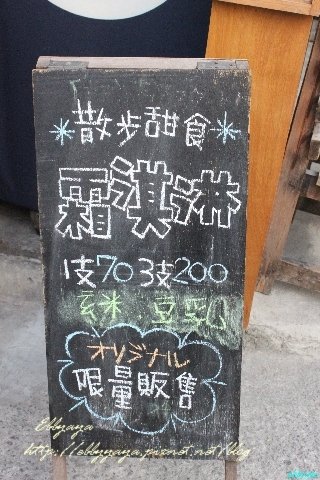 *散步甜食*
霜淇淋
1支70 3支200
玄米 豆乳
オリジナル
限量販售
Ebbyaya
http://ebbyyaya.pixnet.net/blog